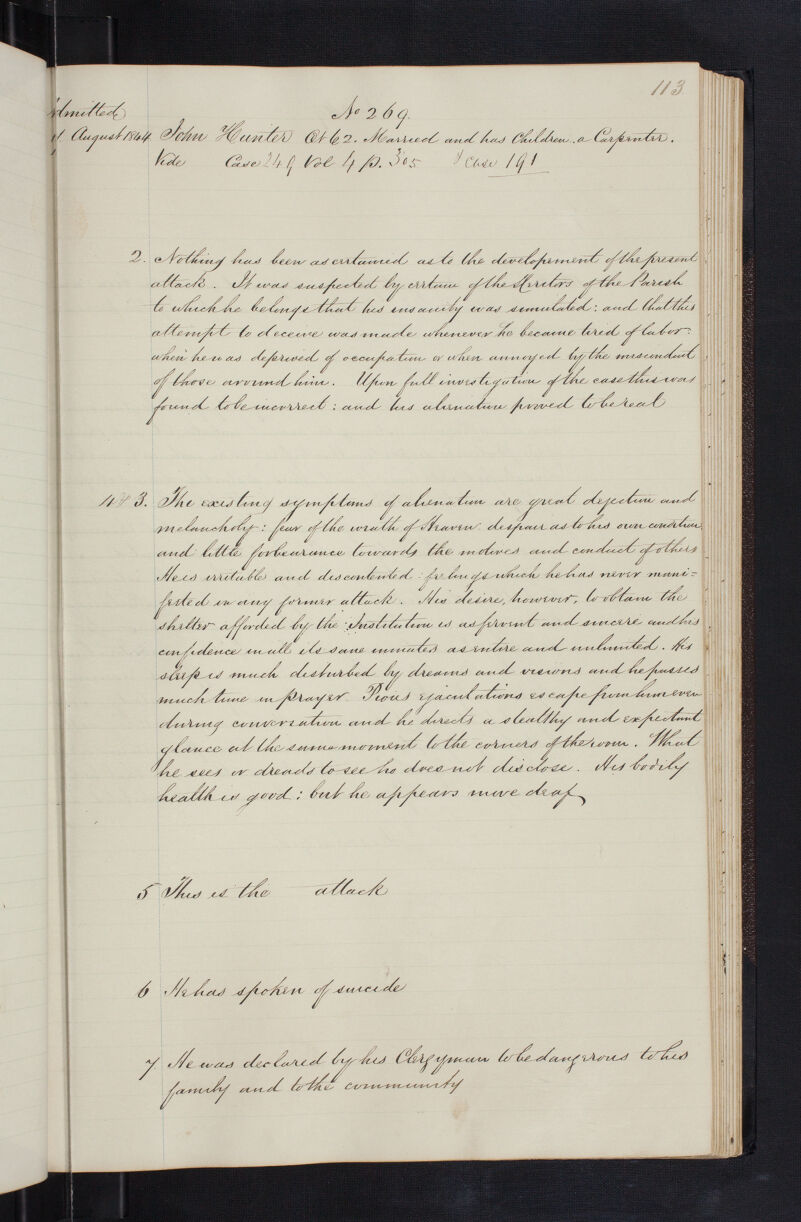 113
No 269.
Admitted
August 1844 John Hunter Æt 62. Married and has Children. a Carpenter.
Vide Case 249 Vol 4 p. 305 & Case 191
2. Nothing has been ascertained as to the development of the present
attack. It was suspected by certain of the Heritors of the Parish
to which he belongs that his insanity was simulated: and that this
attempt to deceive was made whenever he became tired of labor:
when he was deprived of occupation or when annoyed by the misconduct
of those around him. Upon full investigation of the case this was
found to be incorrect: and his alienation proved to be real
4 & 3. The existing symptoms of alienation are great dejection and
melancholy: fear of the wrath of Heaven despair as to his own condition
and little forbearance towards the motives and conduct of others
He is irritable and discontented: feelings which he has never mani=
fested in any former attack. His desire, however, to obtain the
shelter afforded by the Institution is as fervent and sincere and his
confidence in all its sane inmates as entire and unlimited. His
sleep is much disturbed by dreams and visions and he passes
much time in prayer. Pious ejaculations escape from him even
during conversation and he directs a stealthy and expectant
glance at the same moment to the corners of the room. What
he sees or dreads to see he does not disclose. His bodily
health is good: but he appears more deaf
5 This is the attack
6 He has spoken of suicide
7. He was declared by his Clergyman to be dangerous to his
family and to the community